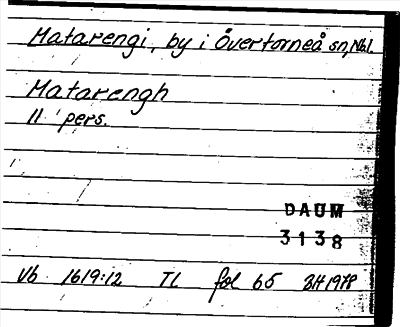 Matarengi, by i Övertorneå sn, Nbl.
Matarengh
11 pers.
DAUM
3138
Vb 1619:12 TL fol 65 BH 1978